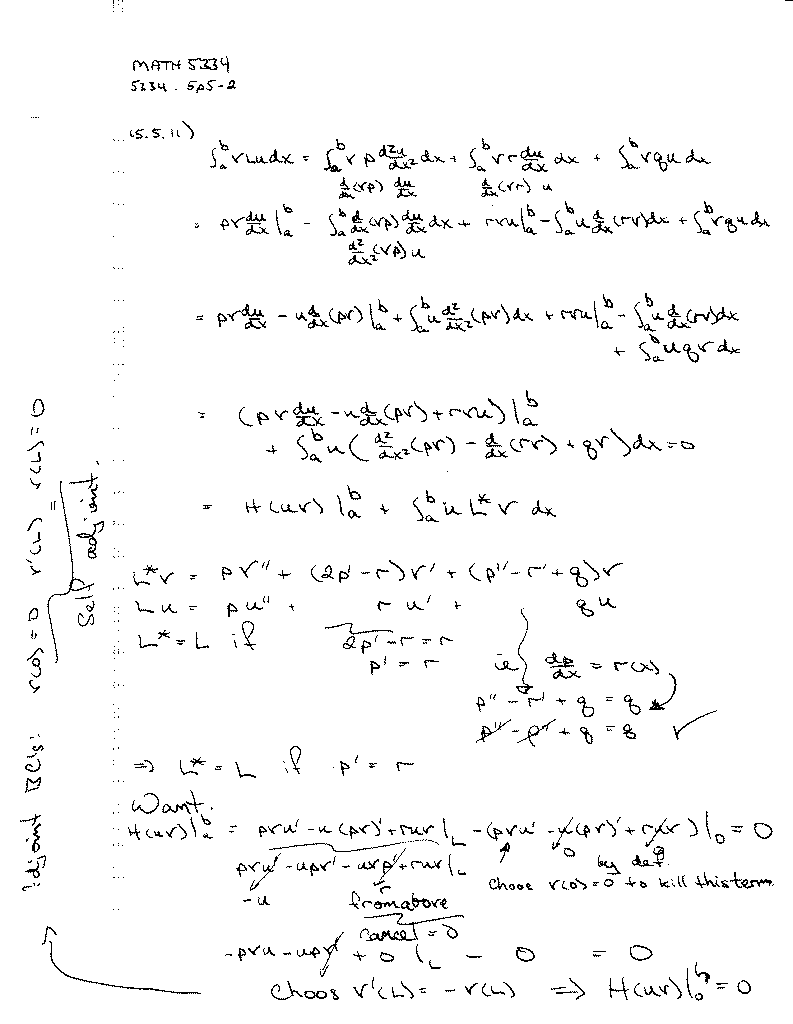 MATH 5334
5334 . 5p5-2
(5.5.11)
∫ₐᵇ vLu dx = ∫ₐᵇ v p d²u/dx² dx + ∫ₐᵇ v r du/dx dx + ∫ₐᵇ v q u dx
d/dx(vp) du/dx d/dx(vr) u
= pv du/dx |ₐᵇ - ∫ₐᵇ d/dx(vp) du/dx dx + rvu|ₐᵇ - ∫ₐᵇ u d/dx(rv)dx + ∫ₐᵇ vqu dx
d²/dx²(vp) u
= pv du/dx - u d/dx(pv) |ₐᵇ + ∫ₐᵇ u d²/dx²(pv)dx + rvu|ₐᵇ - ∫ₐᵇ u d/dx(rv)dx
+ ∫ₐᵇ u q v dx
= (pv du/dx - u d/dx(pv) + rvu)|ₐᵇ
+ ∫ₐᵇ u( d²/dx²(pv) - d/dx(rv) + qv )dx = 0
= H(u,v) |ₐᵇ + ∫ₐᵇ u L* v dx
L*v = pv'' + (2p' - r)v' + (p'' - r' + q)v
Lu = pu'' + r u' + q u
L* = L if 2p' - r = r
p' = r ie dp/dx = r(x)
p'' - r' + q = q
p'' - p'' + q = q ✓
⇒ L* = L if p' = r
Want.
H(u,v)|ₐᵇ = pvu' - u(pv)' + ruv|_L - (pvu' - u(pv)' + ruv)|₀ = 0
0 0
pvu' - upv' - uvp' + ruv|_L by def
-u r choose v(0) = 0 to kill this term
from above
cancel = 0
-pvu - upv' + 0 |_L - 0 = 0
Choos v'(L) = -v(L) ⇒ H(u,v)|₀ᵇ = 0
Adjoint BC's: v(0) = 0 v'(L) + v(L) = 0
Self adjoint.